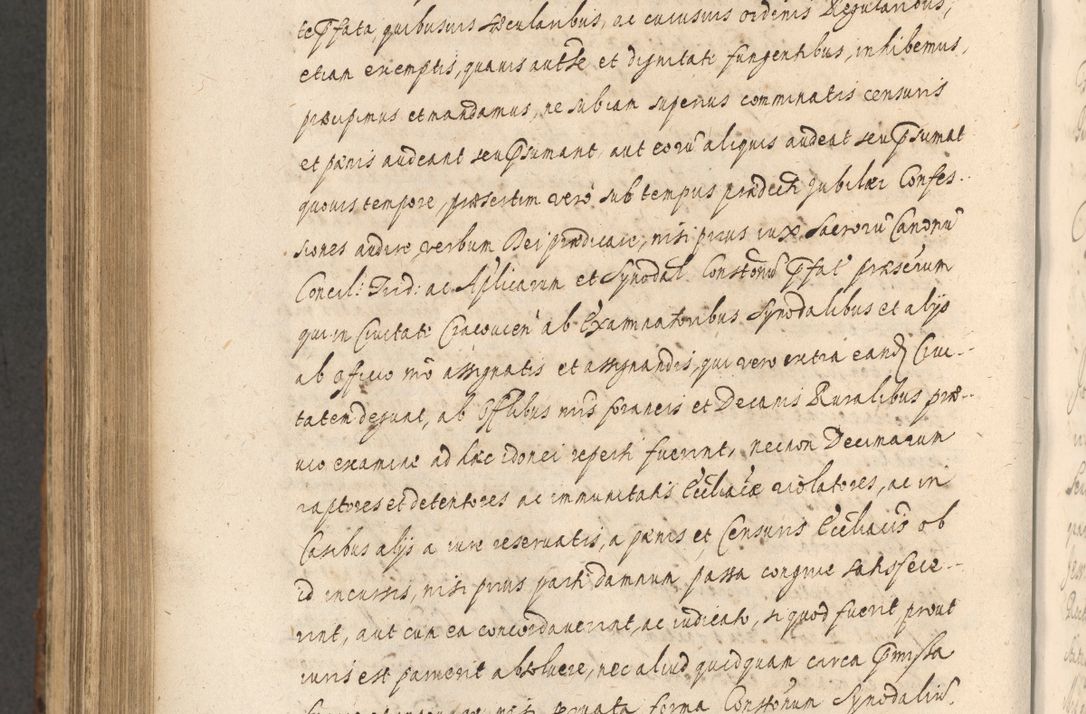 te Pfata quibusuis sæcularibus, ac cuiusuis ordinis Regularibus,
etiam exemptis, quauis autte et dignitati fungentibus, inhibemus,
præcipimus et mandamus, ne sub iam superius comminatis censuris
et pænis audeant seu Psumant, aut eorũ aliquis audeat seu Psumat
quouis tempore, præsertim vero sub tempus prædicti Jubilæi Confes-
siones audire, verbum Dei prædicare, nisi prius iux Sacrorũ Canonũ
Concil: Trid: ac Aplicarum et Synodal Constonũ Pfat præsertim
qui in Ciuitati Cracouien ab Examinatoribus Synodalibus et alijs
ab officio nro assignatis et assignandis, qui vero extra eand Ciui-
tatem degunt, ab Offlibus nris foraneis et Decanis Ruralibus præ-
uio examine ad hæc idonei reperti fuerint, necnon Decimarum
raptores et detentores ac immunitatis Eccliacæ violatores, ac in
Casibus alijs a iure reseruatis, a pænis et Censuris Eccliacis ob
id incursis, nisi prius parti damnum passa congrue satisfece-
rint, aut cum ea concordauerint, ac iudicato, si quod fuerit, prout
iuris est paruerit absoluere, nec aliud quidquam circa Pmissa
nisi seruata forma Constonum Synodaliũ